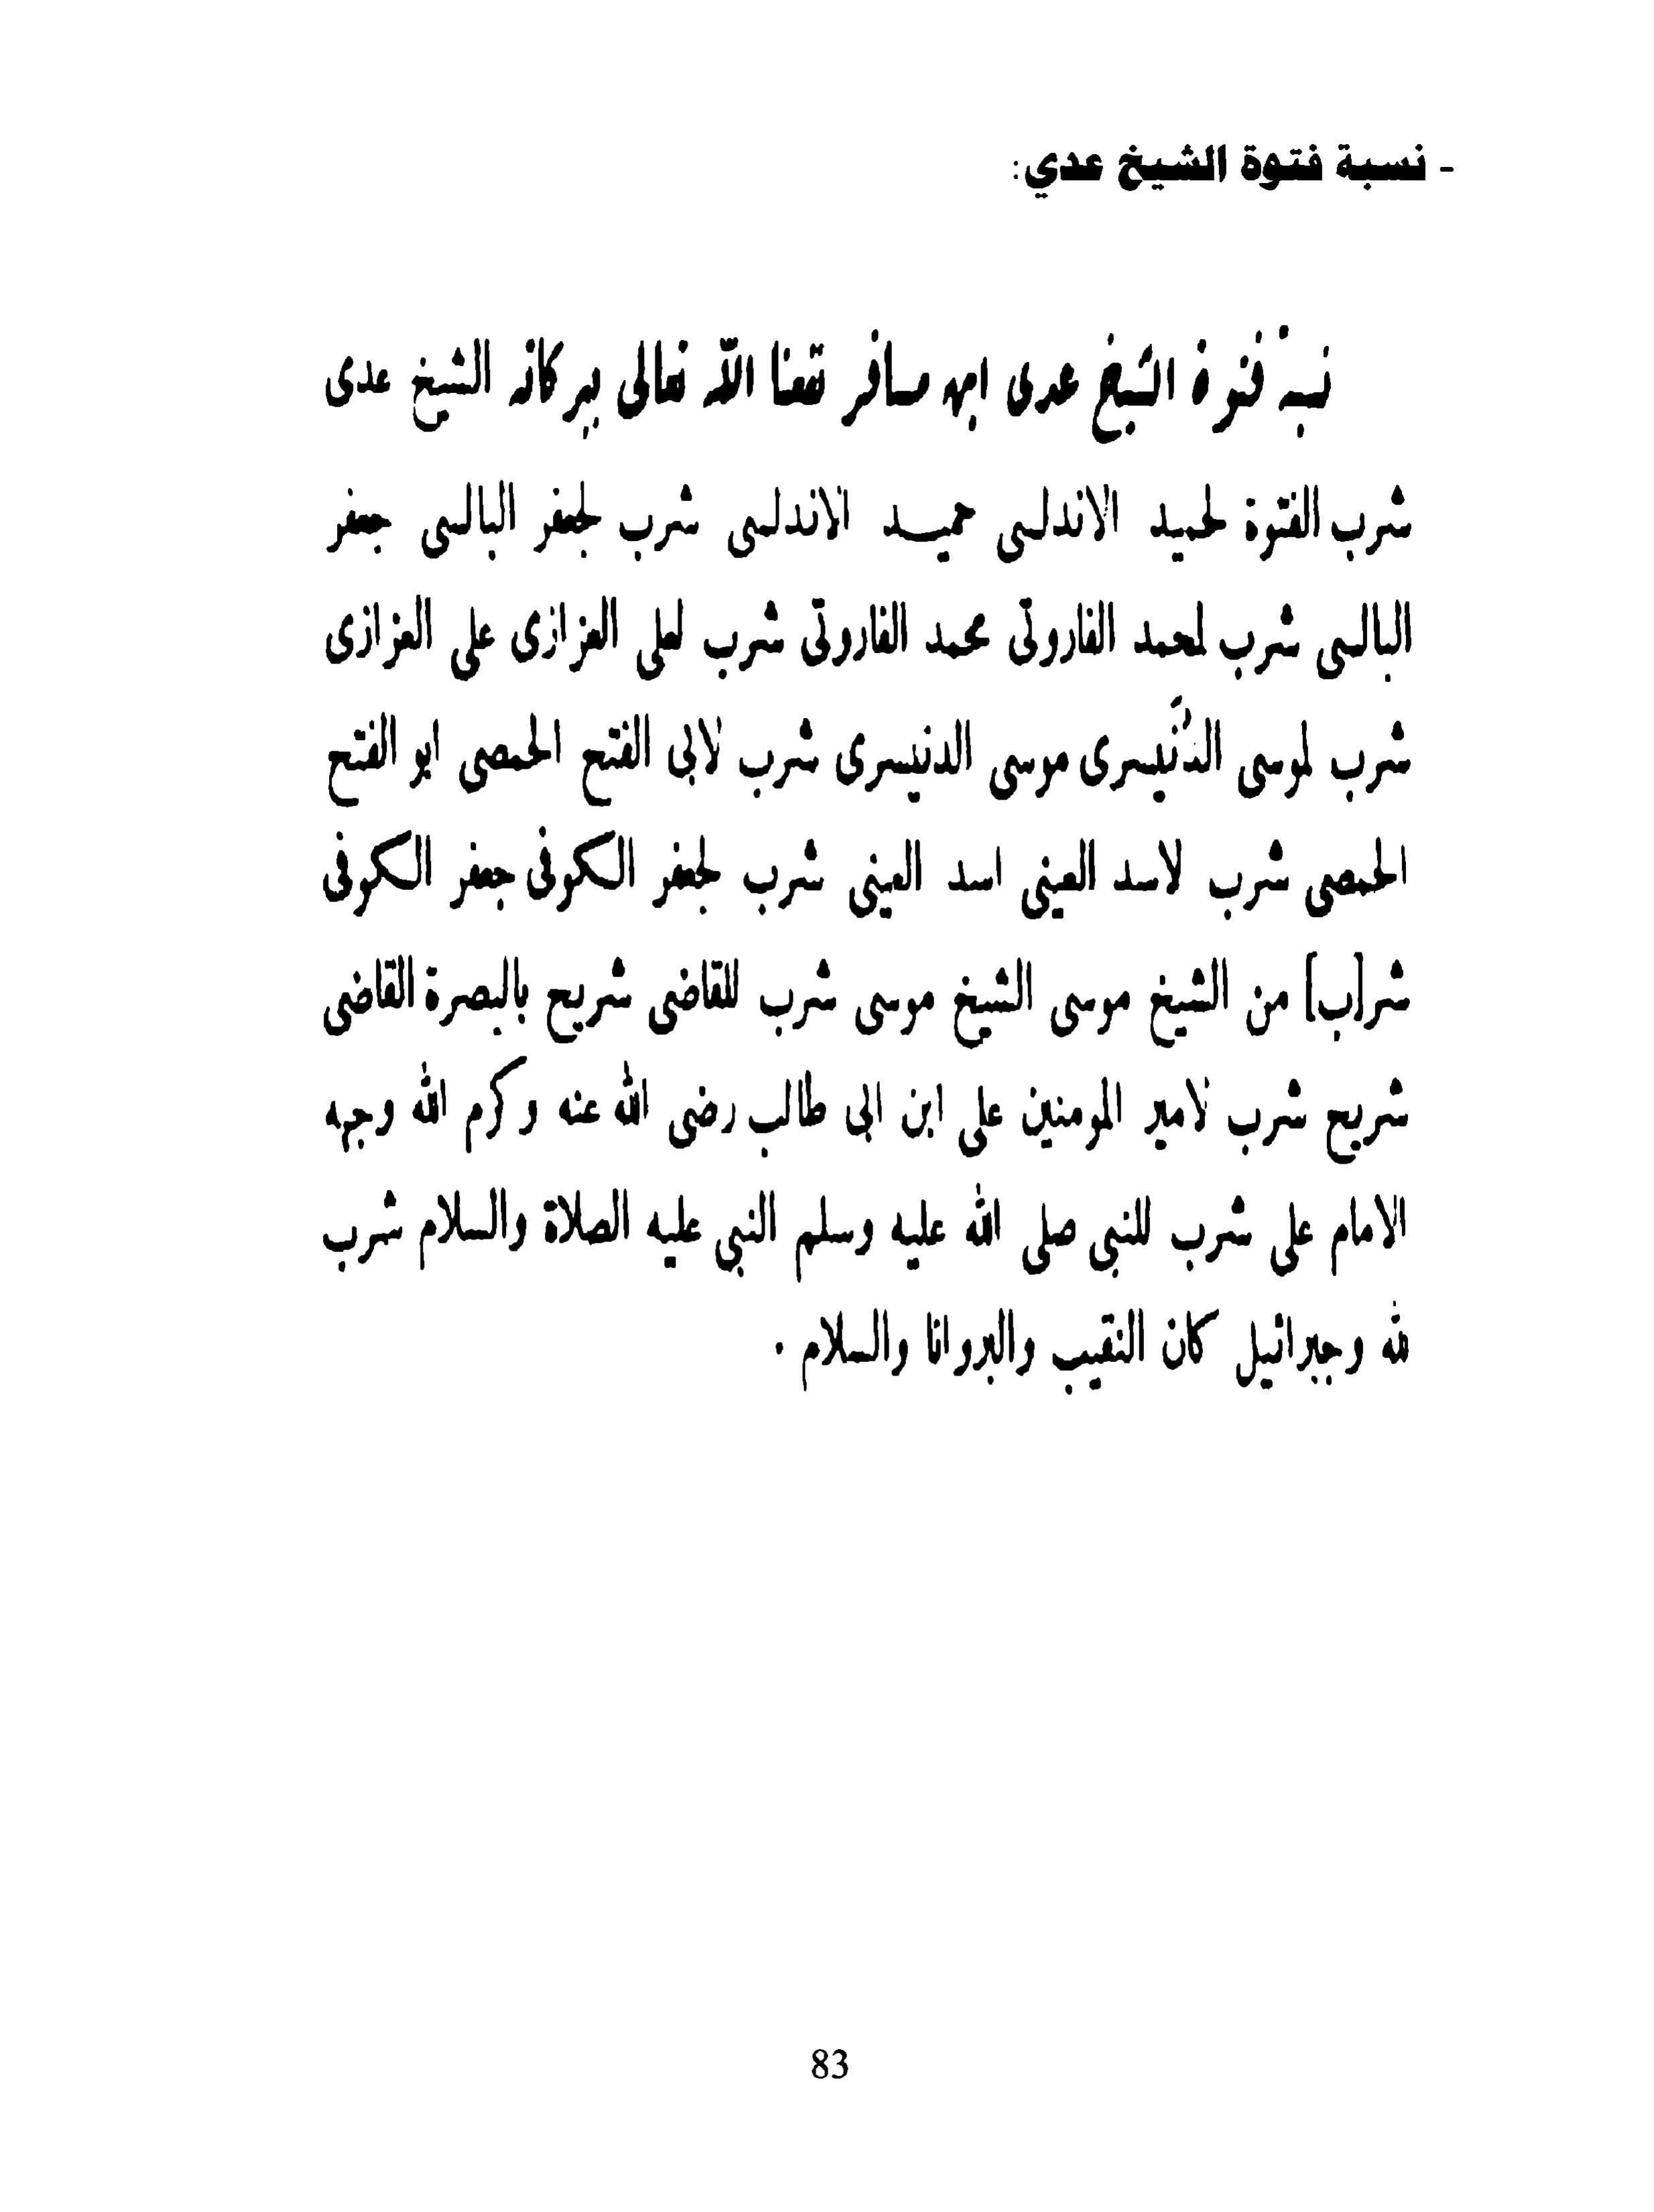 - نسبة فتوة الشيخ عدي:
نسبة فتوة الشيخ عدى ابن مسافر نفعنا الله تعالى ببركاته الشيخ عدى
شرب الفتوة لحميد الاندلسى حميد الاندلسى شرب لجعفر البالسى جعفر
البالسى شرب لمحمد الفاروقى محمد الفاروقى شرب لعلى العزازى على العزازى
شرب لموسى الدُنَيسرى موسى الدنيسرى شرب لابى الفتح الحمصى ابو الفتح
الحمصى شرب لاسد العينى اسد العينى شرب لجعفر الكوفى جعفر الكوفى
شر[ب] من الشيخ موسى الشيخ موسى شرب للقاضى شريح بالبصرة القاضى
شريح شرب لامير المومنين على ابن ابى طالب رضى الله عنه وكرم الله وجهه
الامام على شرب للنبى صلى الله عليه وسلم النبى عليه الصلاة والسلام شرب
لله وجبرائيل كان النقيب والبروانا والسلام .
83